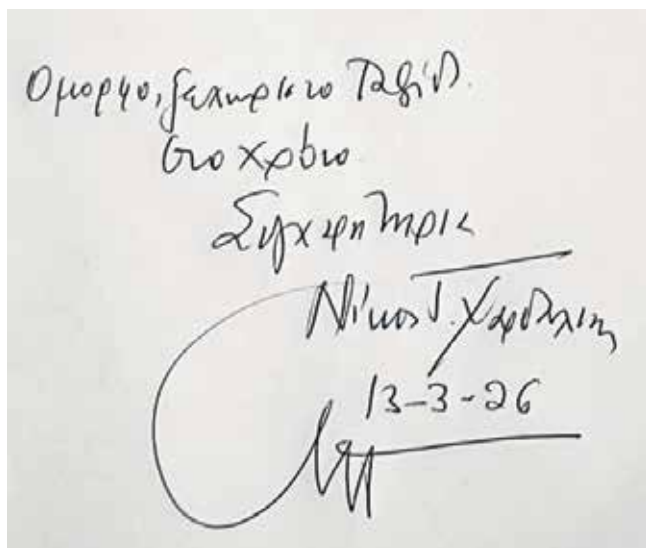 Όμορφο, ξεχωριστο Ταξίδι.
στο χρόνο
Συγχαρητηρια
Νίκος
13-3-26